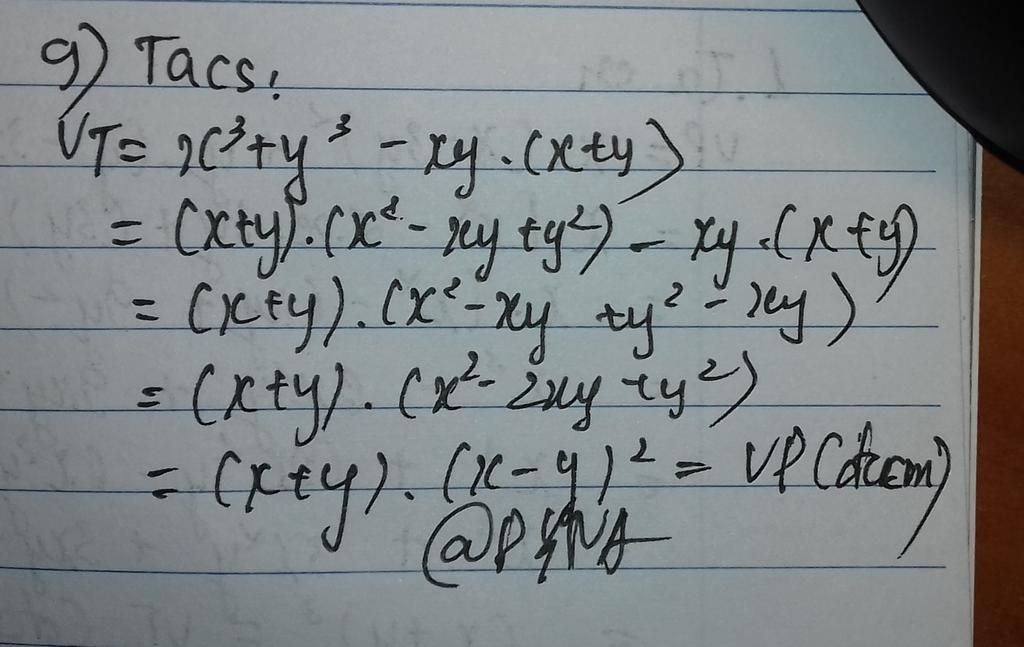 g) Tacs:
VT = x³+y³ - xy.(x+y)
= (x+y).(x² - xy +y²) - xy.(x+y)
= (x+y).(x² - xy +y² - xy)
= (x+y).(x² - 2xy +y²)
= (x+y).(x-y)² = VP(đccm)